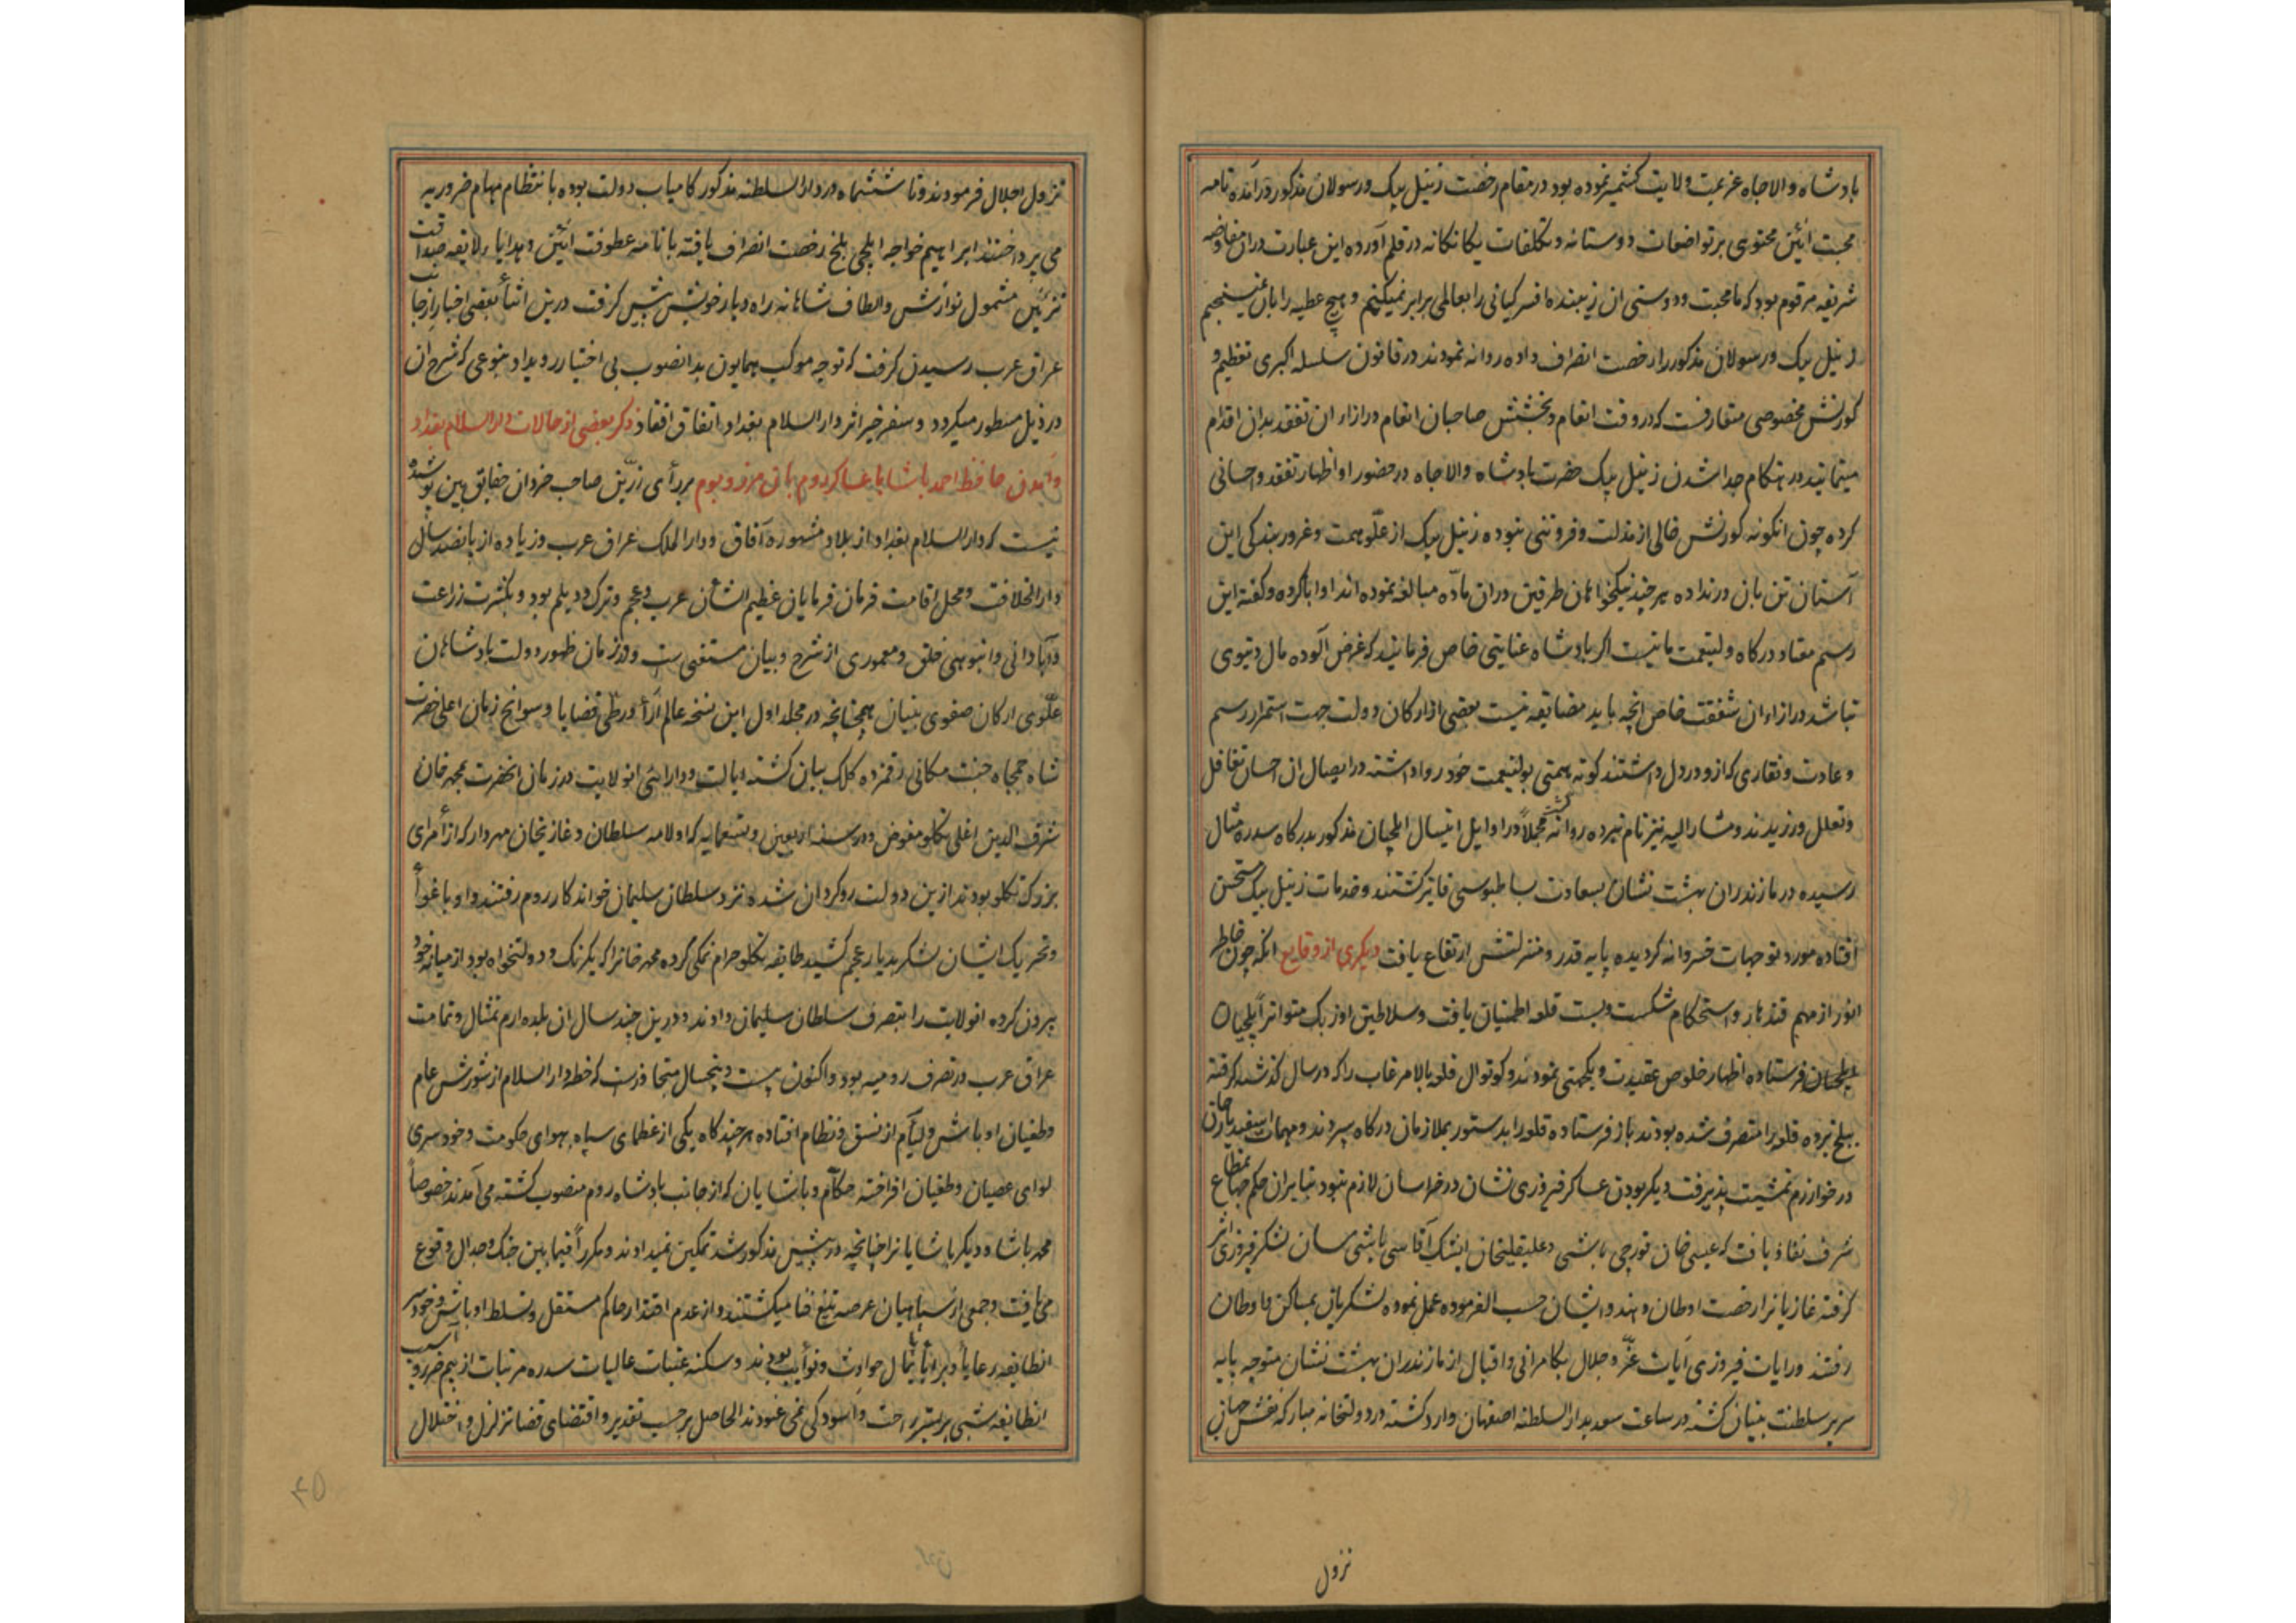 بادشاه والاجاه عزیمت ولایت کشمیر نموده بود در مقام رخصت زنیل بیک و رسولان مذکور درآمده نامه
محبت آئین محتوی بر تواضعات دوستانه و تکلفات یکانکانه در قلم آورده این عبارت در ان مفاوضه
شریفه مرقوم بود که ما محبت و دوستی ان زیبنده افسر کیانی را بعالمی برابر نمیکنیم و هیچ عطیه را بان نمیسنجیم
زنیل بیک و رسولان مذکور را رخصت انصراف داده روانه نمودند در قانون سلسله اکبری تعظیم و
کورنش مخصوصی متعارفست که در وقت انعام و بخشش صاحبان انعام در ازاء ان تفقد بدان اقدام
مینمایند در هنکام جدا شدن زنیل بیک حضرت بادشاه والاجاه در حضور او اظهار تفقد و احسانی
کرده چون انکونه کورنش خالی از مذلت و فروتنی نبوده زنیل بیک از علو همت و غرور بندکی این
آستان تن بان در نداده هر چند نیکخواهان طرفین دران ماده مبالغه نموده اند او ابا کرده و کفته این
رسم معتاد درکاه ولینعمت ما نیست اکر بادشاه عنایتی خاص فرمایند که غرض آلوده مال دنیوی
نباشد در ازاء ان شفقت خاص انچه باید مضایقه نیست بعضی از ارکان دولت جهت استمرار رسم
و عادت و نقاری که ازو در دل داشتند کوته همتی بولینعمت خود روا داشته در ایصال ان احسان تغافل
و تعلل ورزیدند و مشار الیه نیز نام نبرده روانه کشته مجملاً در اوایل ایتئیل ایلچیان مذکور بدرکاه سدره مثال
رسیده در مازندران بهشت نشان بسعادت بساطبوسی فایز کشتند و خدمات زنیل بیک مستحسن
افتاده مورد توجهات خسروانه کردیده پایه قدر و منزلتش ارتفاع یافت دیکری از وقایع انکه چون خاطر
انور از مهم قندهار و استحکام شکست و بست قلعه اطمینان یافت و سلاطین اوزبک متواتر ایلچیان
ایلچیان فرستاده اظهار خلوص عقیدت و یکجهتی نمودند و کوتوال قلعه بالا مرغاب را که در سال کذشته کرفته
ببلخ برده قلعه را متصرف شده بودند باز فرستاده قلعه را بدستور بملازمان درکاه سپردند و مهمات اسفندیار خان
در خوارزم تمشیت پذیرفت دیکر بودن عساکر فیروزی نشان در خراسان لازم نبود بنابران حکم جهانمطاع
شرف نفاذ یافت که عیسی خان قورچی باشی و علیقلیخان ایشک آقاسی باشی سان لشکر فیروزی اثر
کرفته غازیانرا رخصت اوطان دهند و ایشان حسب الفرموده عمل نموده لشکریان بمساکن و اوطان
رفتند و رایات فیروزی آیات عز و جلال بکامرانی و اقبال از مازندران بهشت نشان متوجه پایه
سریر سلطنت بنیان کشته در ساعت سعد بدار السلطنه اصفهان وارد کشته در دولتخانه مبارکه نقش جهان
نزول
نزول اجلال فرمودند و تا ششماه در دار السلطنه مذکور کامیاب دولت بوده بانتظام مهام ضروریه
می پرداختند ابراهیم خواجه ایلچی بلخ رخصت انصراف یافته با نامه عطوفت آئین و هدایاء لایقه صداقت
تزئین مشمول نوازش والطاف شاهانه راه دیار خویش پیش کرفت درین اثنا بعضی اخبار از جانب
عراق عرب رسیدن کرفت که توجه موکب همایون بدانصوب بی اختیار رو یداد بنوعی که شرح ان
در ذیل مسطور میکردد و سفر خیر اثر دار السلام بغداد اتفاق افتاد ذکر بعضی از حالات دار السلام بغداد
و آمدن حافظ احمد پاشا با عساکر روم بان مرز و بوم بر رای رزین صاحب خردان حقایق بین پوشیده
نیست که دار السلام بغداد از بلاد مشهوره آفاق و دار الملک عراق عرب و زیاده از پانصد سال
دار الخلافت و محل اقامت فرمان فرمایان عظیم الشان عرب و عجم و ترک و دیلم بود و بکثرت زراعت
و آبادانی و انبوهی خلق و معموری از شرح و بیان مستغنی ست و در زمان ظهور دولت بادشاهان
علوی ارکان صفوی بنیان همچنانچه در مجلد اول این نسخه عالم آرا در طی قضایا و سوانح زمان اعلی حضرت
شاه جمجاه جنت مکانی رقمزده کلک بیان کشته ایالت و دارائی انولایت در زمان انحضرت بمحمد خان
شرف الدین اغلی تکلو مفوض و در سنه اربعین و تسعمایه که اولامه سلطان و غازیخان مهردار که از امرای
بزرک تکلو بودند ازین دولت روکردان شده نزد سلطان سلیمان خواندکار روم رفتند و او باغوا
و تحریک ایشان لشکر بدیار عجم کشید طایفه تکلو حرام نمکی کرده محمد خانرا که یکرنک و دولتخواه بود از میانه خود
بیرون کرده انولایت را بتصرف سلطان سلیمان دادند و درین چند سال ان بلده ارم تمثال و تمامت
عراق عرب در تصرف رومیه بود و اکنون بیست و پنجسال متجاوزست که خطه دار السلام از شورش عام
و طغیان اوباش و لیام از نسق و نظام افتاده هر چند کاه یکی از عظمای سپاه بهوای حکومت و خود سری
لوای عصیان و طغیان افراخته حکام و پاشایان که از جانب بادشاه روم منصوب کشته می آمدند خصوصاً
محمد پاشا و دیکر پاشایانرا چنانچه در پیش مذکور شد تمکین نمیدادند و مکرراً فیما بین جنک و جدال وقوع
می یافت و جمعی از سپاهیان عرصه تیغ فنا میکشتند و از عدم اقتدار حاکم مستقل و تسلط اوباش و خودسر
انطایفه رعایا و برایا پایمال حوادث و نوایب بودند و سکنه عتبات عالیات سدره مرتبات از بیم ضرر و آسیب
انطایفه شبی بر بستر راحت و آسودکی نمی غنودند الحاصل بر حسب تقدیر و اقتضای قضا تزلزل و اختلال